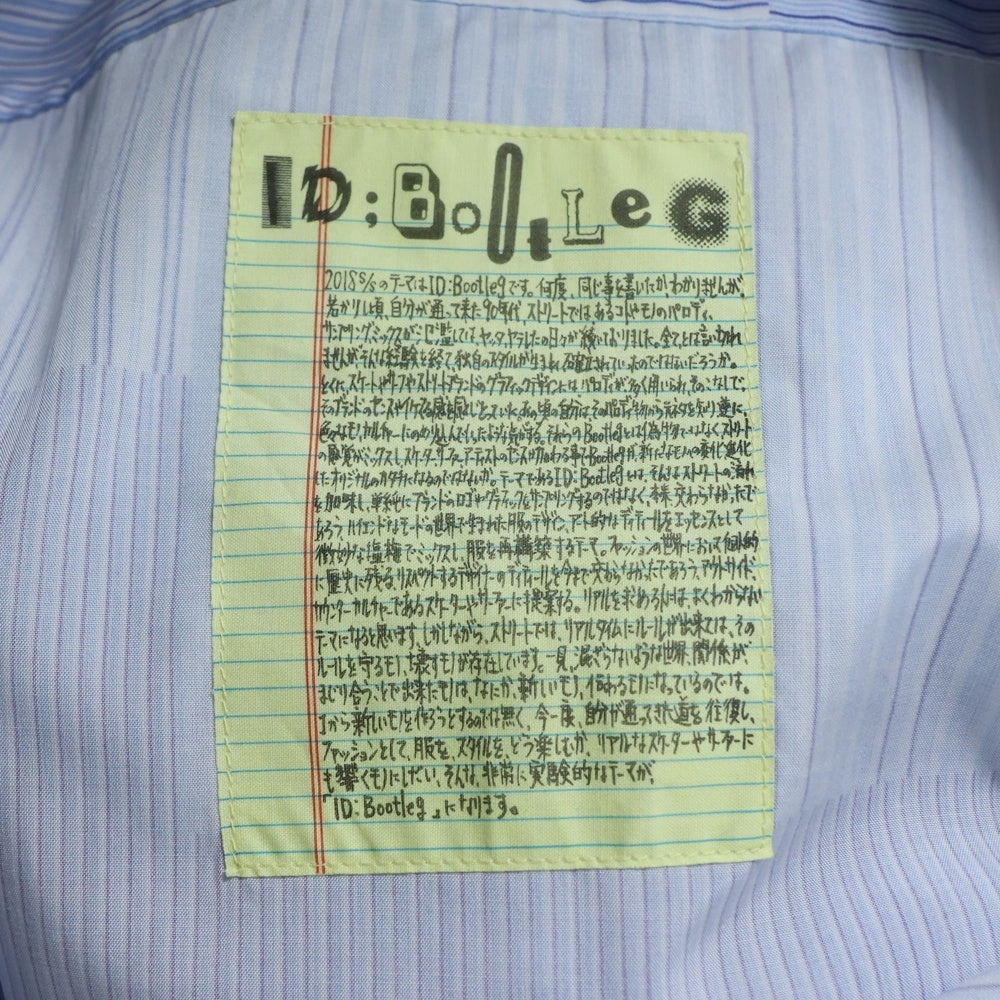 ID;BootLeG
2018 S/SのテーマはID:Bootlegです。何度、同じ事を書いたか、わかりませんが、
若かりし頃、自分が通って来た90年代、ストリートではあるコトやモノのパロディ、
サンプリング、ミックスが氾濫しては、ヤッタ、ヤラレタの日々が続いておりました。全てとは言い切れ
ませんが、そんな経験を経て、独自のスタイルが生まれ、確立されていったのではないだろうか。
とくに、スケートやサーフやストリートブランドのグラフィックデザインにはパロディが多く用いられ、そのこなしで、
そのブランドのセンスやイケてる感を感じとっていた。あの頃の自分は、そのパロディ物から元ネタを知り、逆に、
色々なモノ、カルチャーにのめり込んでいったような気がする。それらのBootlegとは偽物ではなくストリート
の感覚がミックスし、スケーター、サーファー、アーティストのセンスが加わる事でBootlegが、新たなモノへの変化、進化
したオリジナルのカタチになるのではないか。テーマであるID:Bootlegは、そんなストリートの流れ
を加味し、単純にブランドのロゴやグラフィックをサンプリングするのではなく、本来、交わらなかったで
あろう、ハイエンドなモードの世界で生まれた服のデザイン、アート的なディティールをエッセンスとして
微妙な塩梅でミックスし、服を再構築するテーマ。ファッションの世界において個人的
に歴史に残る、リスペクトするデザイナーのディティールを今まで交わらなかったであろう、アウトサイド、
カウンターカルチャーであるスケーターやサーファーに提案する。リアルを求める人には、よくわからない
テーマになると思います。しかしながら、ストリートでは、リアルタイムにルールが出来ては、その
ルールを守るモノ、壊すモノが存在しています。一見、混ざらないような世界、関係が、
まじり合うことで出来たモノは、なにか、新しいモノ、伝わるモノになっているのでは。
1から新しいモノを作ろうとするのでは無く、今一度、自分が通ってきた道を往復し、
ファッションとして、服を、スタイルを、どう楽しむか、リアルなスケーターやサーファーに
も響くモノにしたい、そんな、非常に実験的なテーマが、
「ID:Bootleg」になります。